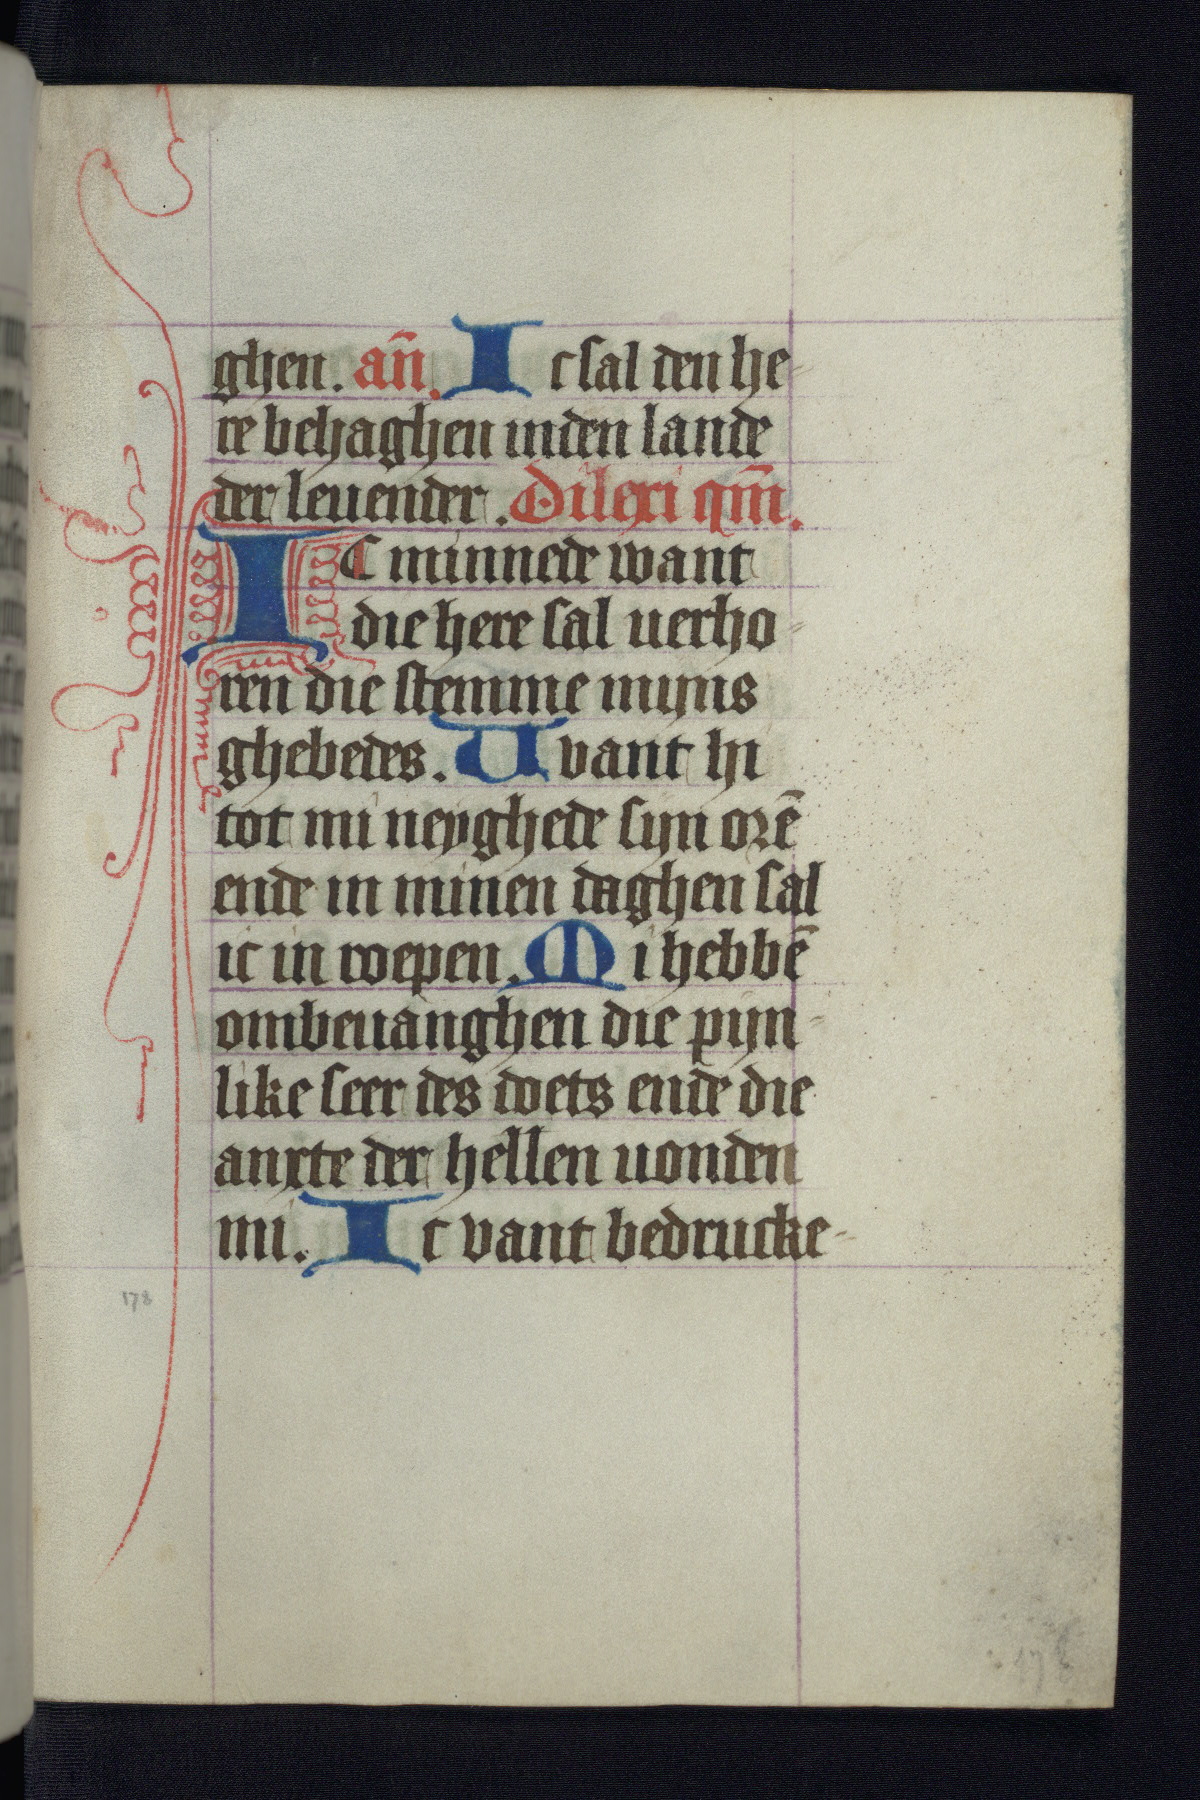 ghen. an̄. Ic sal den he-
re behaghen inden lande
der leuender. Dilexi qm̄.
IC minnede want
die here sal uerho-
ren die stemme mijns
ghebedes. Uvant hi
tot mi neyghede sijn orē
ende in minen daghen sal
ic in roepen. Mi hebbē
ombeuanghen die pijn-
like seer des doets ende die
anxte der hellen uonden
mi. Ic vant bedrucke-
178